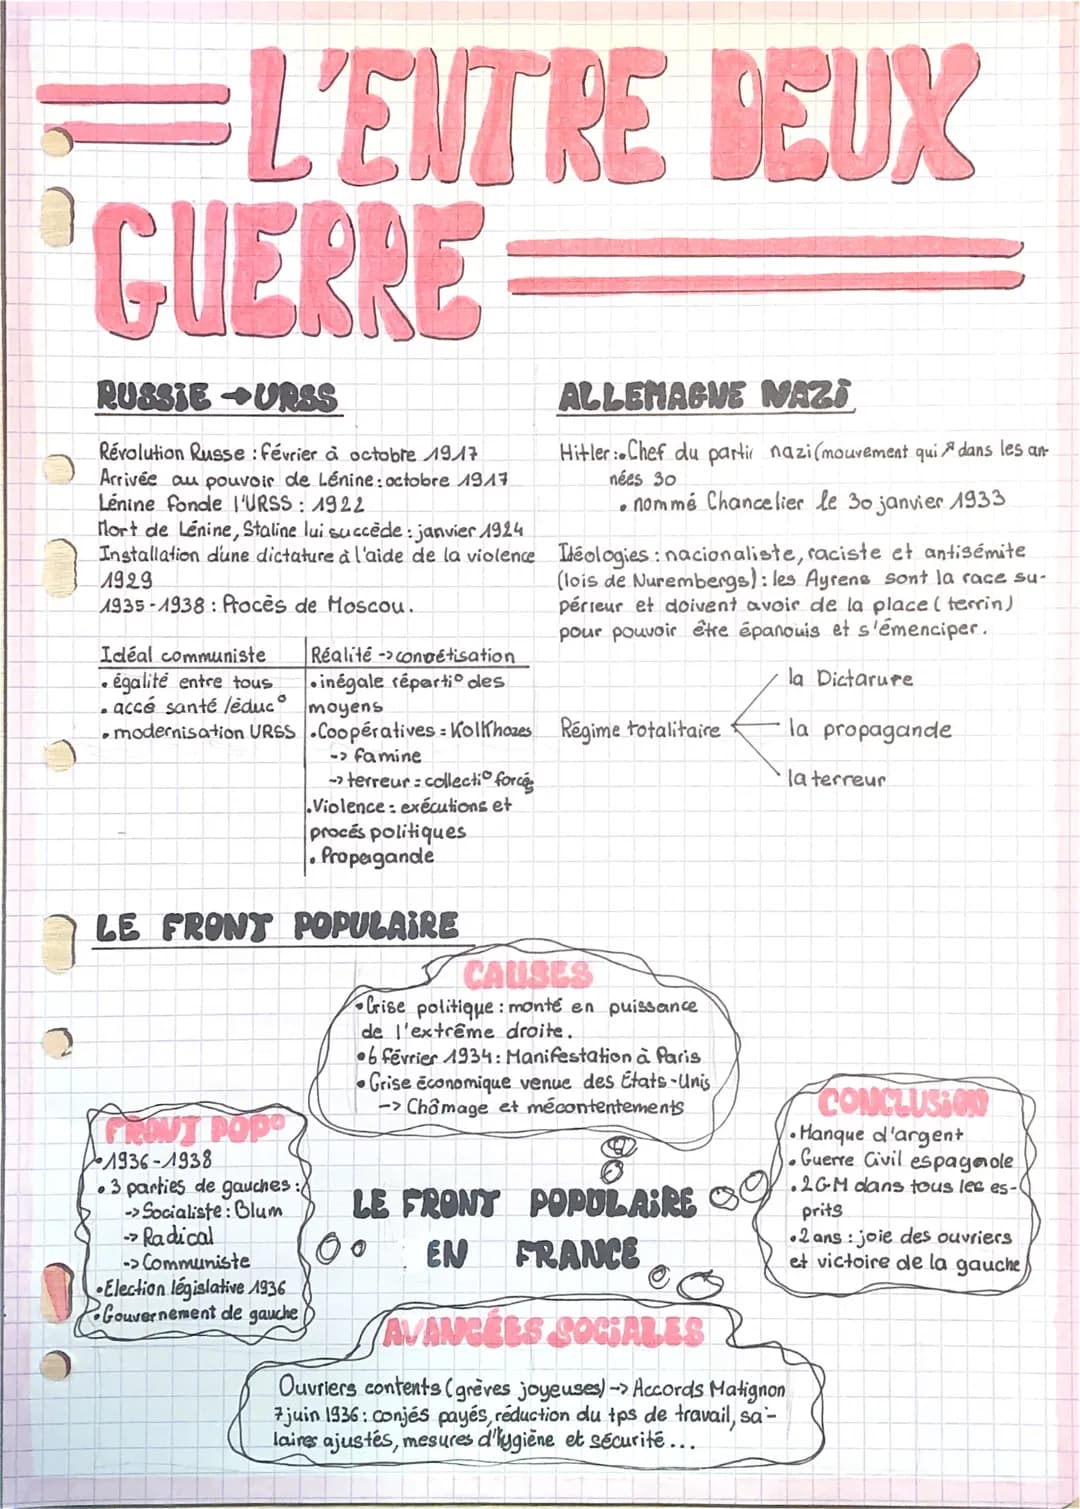 L'ENTRE DEUX
GUERRE
RUSSIE → URSS
Révolution Russe : février à octobre 1917
Arrivée au pouvoir de Lénine : octobre 1917
Lénine fonde l'URSS : 1922
Mort de Lénine, Staline lui succède : janvier 1924
Installation d'une dictature à l'aide de la violence
1929
1935-1938 : Procès de Moscou.
Idéal communiste
• égalité entre tous
• accé santé /éduc°
• modernisation URSS
Réalité -> concrétisation
• inégale réparti° des
moyens
• Coopératives = Kolkhozes
-> famine
-> terreur = collecti° forcé
• Violence : exécutions et
procés politiques
• Propagande
ALLEMAGNE NAZI
Hitler : • Chef du parti nazi (mouvement qui ↗ dans les an-
nées 30
• nommé Chancelier le 30 janvier 1933
Idéologies : nacionaliste, raciste et antisémite
(lois de Nurembergs) : les Ayrens sont la race su-
périeur et doivent avoir de la place ( terrin)
pour pouvoir être épanouis et s'émenciper.
Régime totalitaire
la Dictarure
la propagande
la terreur
LE FRONT POPULAIRE
CAUSES
• Crise politique : monté en puissance
de l'extrême droite.
• 6 février 1934 : Manifestation à Paris
• Crise économique venue des États-Unis
-> Chômage et mécontentements
FRONT POP°
• 1936-1938
• 3 parties de gauches :
-> Socialiste : Blum
-> Radical
-> Communiste
• Election législative 1936
• Gouvernement de gauche
LE FRONT POPULAIRE
EN FRANCE
CONCLUSION
• Manque d'argent
• Guerre Civil espagnole
• 2GM dans tous les es-
prits
• 2 ans : joie des ouvriers
et victoire de la gauche
AVANCÉES SOCIALES
Ouvriers contents (grèves joyeuses) -> Accords Matignon
7 juin 1936 : conjés payés, réduction du tps de travail, sa-
laires ajustés, mesures d'hygiène et sécurité...